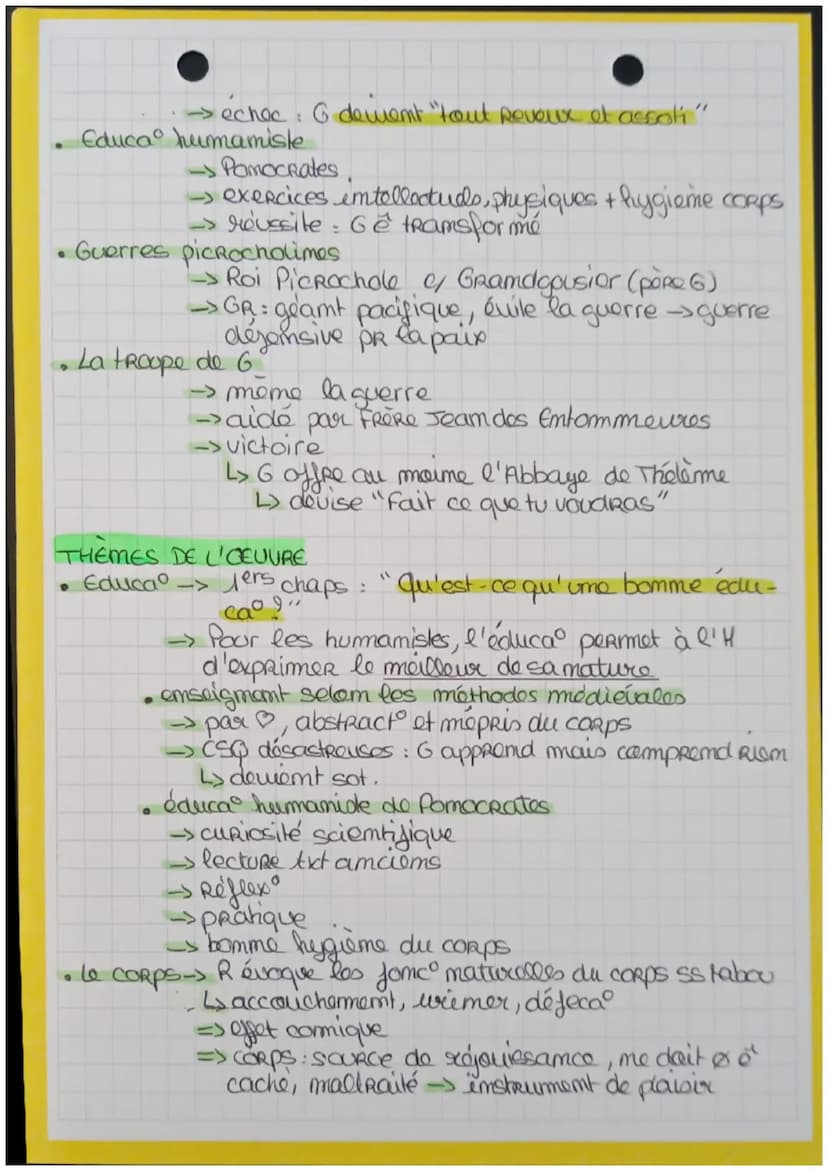 → échec : G devient "tout reveux et assoti"
• Educa° humaniste
→ Ponocrates
→ exercices intellectuels, physiques + hygiène corps
→ réussite : G ê transformé
• Guerres picrocholines
→ Roi Picrochole c/ Grandgousier (père G)
→ GR : géant pacifique, évite la guerre → guerre
défensive pr la paix
• La troupe de G
→ mène la guerre
→ aidé par Frère Jean des Entommeures
→ victoire
↳ G offre au moine l'Abbaye de Thélème
↳ devise "Fait ce que tu voudras"
THÈMES DE L'ŒUVRE
• Educa° → 1ers chaps : "Qu'est-ce qu'une bonne édu-
ca° ?"
→ Pour les humanistes, l'éduca° permet à l'H
d'exprimer le meilleur de sa nature
• enseignmt selon les méthodes médiévales
→ par ♡, abstract° et mépris du corps
→ CSQ désastreuses : G apprend mais comprend rien
↳ devient sot.
• éduca° humaniste de Ponocrates
→ curiosité scientifique
→ lecture txt anciens
→ Réflex°
→ pratique
→ bonne hygiène du corps
• Le corps → R évoque les fonc° naturelles du corps ss tabou
↳ accouchement, uriner, déféca°
⇒ effet comique
⇒ corps : source de réjouissance, ne doit ø ê
caché, maltraité → instrument de plaisir